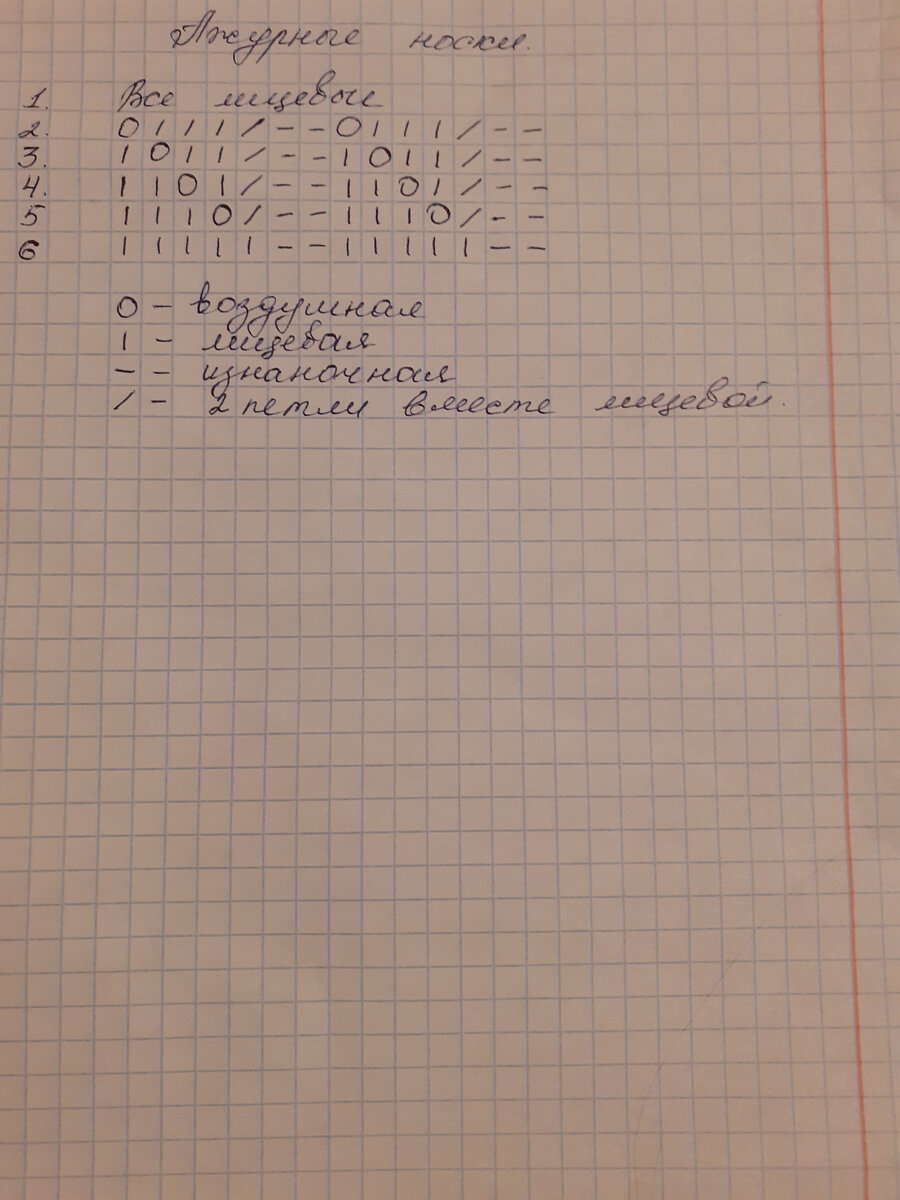 Ажурные носки.
1. Все лицевые
2. 0 1 1 1 / - - 0 1 1 1 / - -
3. 1 0 1 1 / - - 1 0 1 1 / - -
4. 1 1 0 1 / - - 1 1 0 1 / - -
5 1 1 1 0 / - - 1 1 1 0 / - -
6 1 1 1 1 1 - - 1 1 1 1 1 - -
0 - воздушная
1 - лицевая
- - изнаночная
/ - 2 петли вместе лицевой.